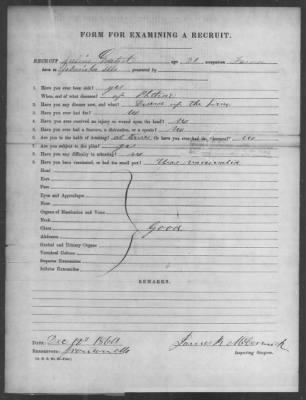 FORM FOR EXAMINING A RECRUIT.
RECRUIT age occupation Farmer
born in presented by
1. Have you ever been sick? yes
When, and of what disease?
2. Have you any disease now, and what? Disease of the
3. Have you ever had fits? No
4. Have you ever received an injury or wound upon the head? No
5. Have you ever had a fracture, a dislocation, or a sprain? No
6. Are you in the habit of drinking? at times Or have you ever had the " horrors?" No
7. Are you subject to the piles? yes
8. Have you any difficulty in urinating? No
9. Have you been vaccinated, or had the small pox? Was vaccinated
Head
Ears
Face
Eyes and Appendages
Nose
Organs of Mastication and Voice
Neck
Chest Good
Abdomen
Genital and Urinary Organs
Vertebral Column
Superior Extremities
Inferior Extremities
REMARKS.
DATE: Dec 1864
RENDEZVOUS:
James McCormick
Inspecting Surgeon.